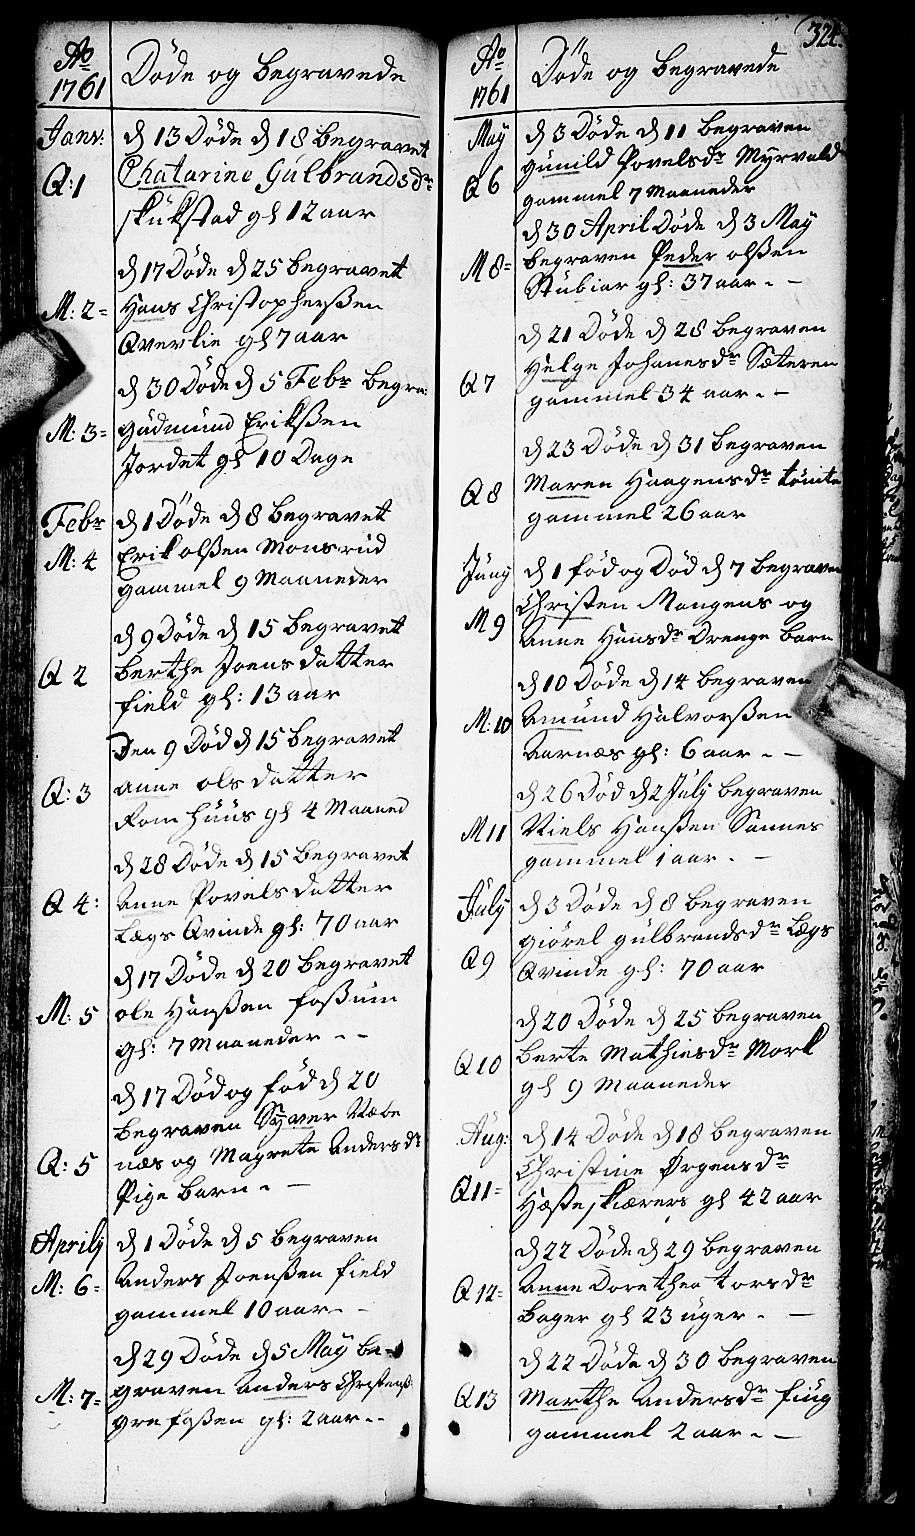 Ao 1761 Döde og begravede
Janv: d 13 Döde d 18 begravet
Q: 1 Chatarine Gulbrands dr
skukstad gl 12 aar
d 17 Döde d 25 begravet
M: 2= Hans Christophersßen
Qverlie gl 7 aar
d 30 Döde d 5 Febr begra:
M: 3= Gudmund Erikßen
Jordet gl 10 Dage
Febr d 1 Döde d 8 begravet
M: 4 Erik olßen Monsrud
gammel 9 Maaneder
d 9 Döde d 15 begravet
Q 2 berthe Joens datter
field gl: 13 aar
Den 9 Död d 15 begravet
Q: 3 anne ols datter
Rom huus gl 4 Maaned
d 28 Döde d 15 begravet
Q 4: Anne Povels datter
Lægs Qvinde gl: 70 aar
d 17 Döde d 20 begravet
M: 5 ole Hanßen foßum
gl: 7 Maaneder - -
d 17 Död og föd d 20
begraven Syver Næbe
Q: 5 næs og Magrete Anders dr
Pige barn - -
Aprily d 1 Döde d 5 begraven
M: 6= Anders Joenßen field
gammel 10 aar - -
d 29 Döde d 5 May be-
M: 7= graven anders Christenß:
grefoßen gl: 2 aar - -
324.
Ao 1761 Döde og begravede
May d 3 Döde d 11 begraven
Q 6 gunild Povelsdr Myrvold
gammel 7 Maaneder
d 30 April Döde d 3 May
M 8= begraven Peder olßen
Stubiar gl: 37 aar. -
d 21 Döde d 28 begraven
Q 7 Helge Johanesdr Sæteren
gammel 34 aar. -
d 23 Döde d 31 begraven
Q 8 Maren Haagensdr tömte
gammel 26 aar
Juny d 1 föd og Död d 7 begraven
M 9 Christen Mangens og
Anne Hansdr Drenge barn
d 10 Döde d 14 begraven
M: 10 Amund Halvorßen
Aarnæs gl: 6 aar. -
d 26 Död d 2 July begraven
M 11 Niels Hanßen Sannes
gammel 1 aar. -
July d 3 Döde d 8 begraven
Q 9 giörel gulbrandsdr Lægs
Qvinde gl: 70 aar
d 20 Döde d 25 begraven
Q 10 berte Mathiesdr Mork
gl 9 Maaneder
Aug: d 14 Döde d 18 begraven
Q 11= Christine Ørgensdr
Hæsteskiærers gl 42 aar
d 22 Döde d 29 begraven
Q 12= Anne Dorethea torsdr
bager gl 23 uger. -
d 22 Döde d 30 begraven
Q 13 Marthe Andersdr fiug
gammel 2 aar. -